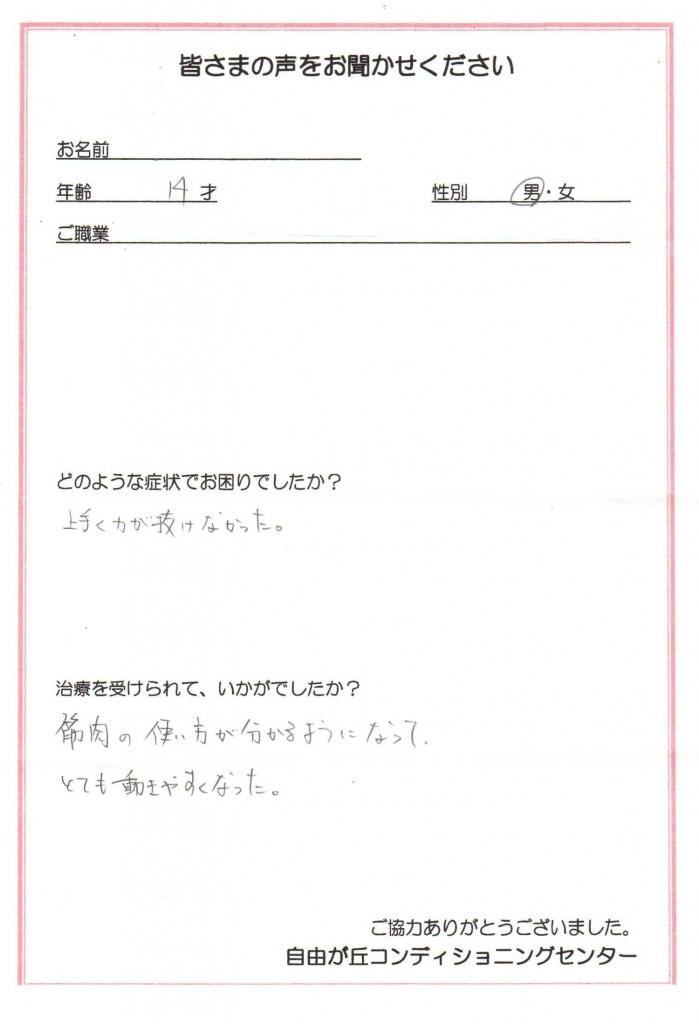 皆さまの声をお聞かせください
お名前
年齢 14 才 性別 男・女
ご職業
どのような症状でお困りでしたか？
上手く力が抜けなかった。
治療を受けられて、いかがでしたか？
筋肉の使い方が分かるようになって、
とても動きやすくなった。
ご協力ありがとうございました。
自由が丘コンディショニングセンター